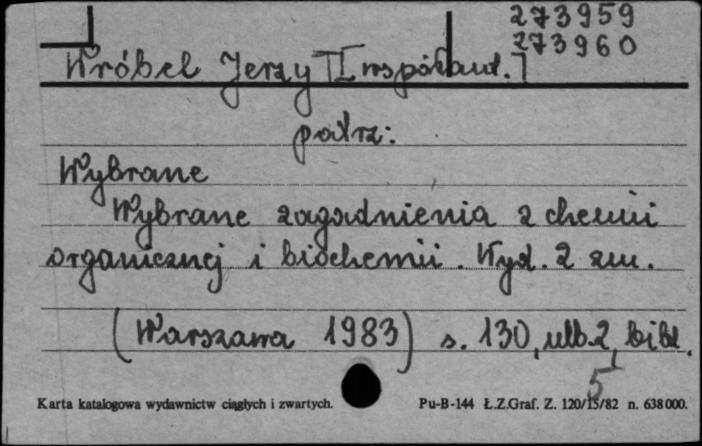 273959
273960
Wróbel Jerzy II współaut.]
patrz:
Wybrane
Wybrane zagadnienia z chemii
organicznej i biochemii. Wyd. 2 zm.
(Warszawa 1983) s. 130, nlb. 2, bibl.
5
Karta katalogowa wydawnictw ciągłych i zwartych. Pu-B-144 Ł.Z.Graf. Z. 120/15/82 n. 638000.